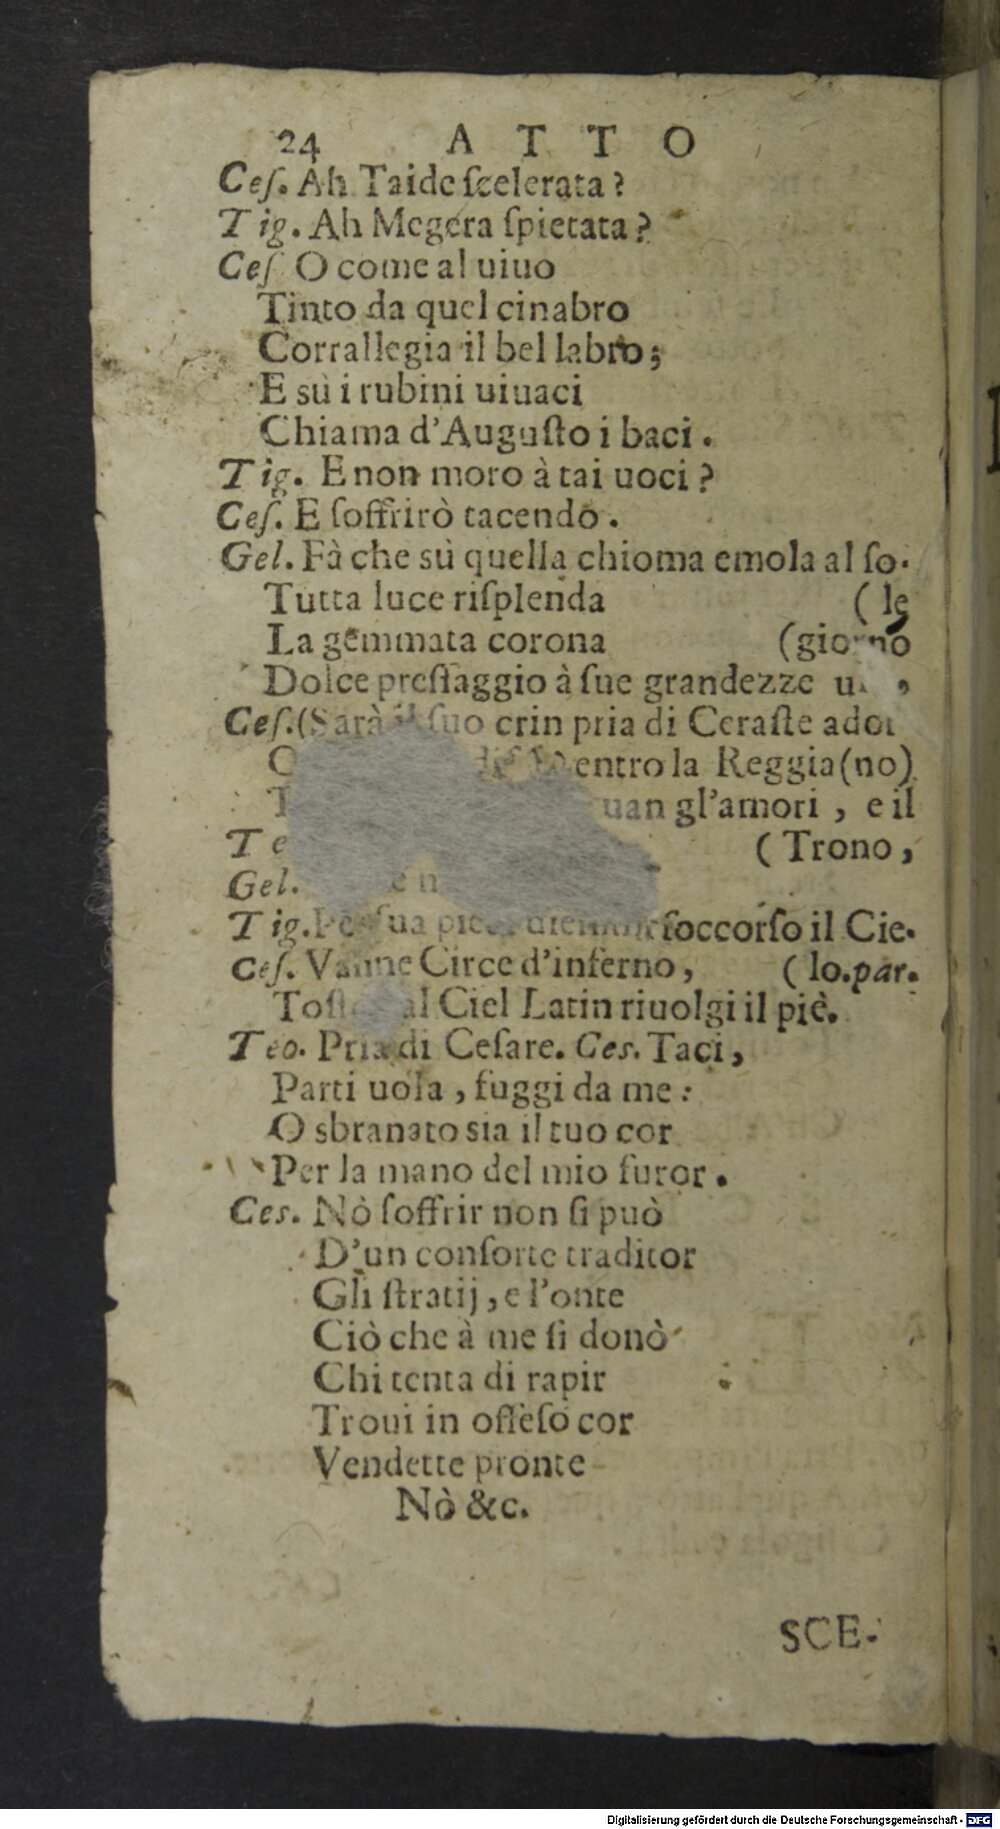 24 ATTO
Ceſ. Ah Taide ſcelerata?
Tig. Ah Megera ſpietata?
Ceſ O come al uiuo
Tinto da quel cinabro
Corrallegia il bel labro;
E sù i rubini uiuaci
Chiama d'Auguſto i baci.
Tig. E non moro à tai uoci?
Ceſ. E ſoffrirò tacendo.
Gel. Fà che sù quella chioma emola al ſo-
Tutta luce riſplenda (le
La gemmata corona (giorno
Dolce preſſaggio à ſue grandezze
Ceſ. (Sarà il ſuo crin pria di Ceraſte ador
entro la Reggia (no)
uan gl'amori, e il
(Trono,
Gel.
Tig. ſua ſoccorſo il Cie-
Ceſ. Vanne Circe d'inferno, (lo. par.
al Ciel Latin riuolgi il piè.
Teo. Pria di Ceſare. Ces. Taci,
Parti uola, fuggi da me:
O sbranato sia il tuo cor
Per la mano del mio furor.
Ces. Nò ſoffrir non ſi può
D'un conſorte traditor
Gli ſtratij, e l'onte
Ciò che à me ſi donò
Chi tenta di rapir
Troui in offeſo cor
Vendette pronte
Nò &c.
SCE-
Digitalisierung gefördert durch die Deutsche Forschungsgemeinschaft - DFG